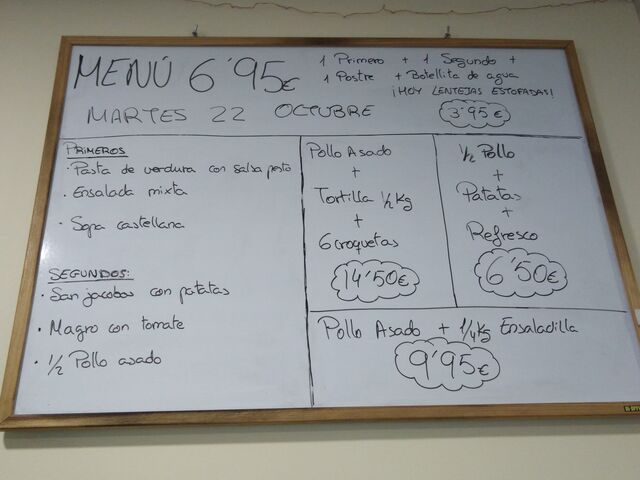 MENÚ 6'95€
1 Primero + 1 Segundo +
1 Postre + Botellita de agua
¡HOY LENTEJAS ESTOFADAS!
3'95€
MARTES 22 OCTUBRE
PRIMEROS
· Pasta de verdura con salsa pesto
· Ensalada mixta
· Sopa castellana
SEGUNDOS:
· San jacobos con patatas
· Magro con tomate
· 1/2 Pollo asado
Pollo Asado
+
Tortilla 1/2 Kg
+
6 croquetas
14'50€
1/2 Pollo
+
Patatas
+
Refresco
6'50€
Pollo Asado + 1/4 Kg Ensaladilla
9'95€